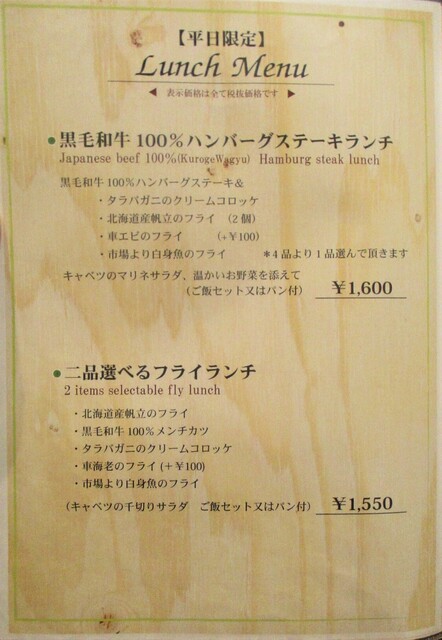 【平日限定】
Lunch Menu
◀ 表示価格は全て税抜価格です ▶
●黒毛和牛 100%ハンバーグステーキランチ
Japanese beef 100%(KurogeWagyu) Hamburg steak lunch
黒毛和牛 100%ハンバーグステーキ&
・タラバガニのクリームコロッケ
・北海道産帆立のフライ (2個)
・車エビのフライ (+¥100)
・市場より白身魚のフライ *4品より1品選んで頂きます
キャベツのマリネサラダ、温かいお野菜を添えて
(ご飯セット又はパン付) ¥1,600
●二品選べるフライランチ
2 items selectable fly lunch
・北海道産帆立のフライ
・黒毛和牛 100%メンチカツ
・タラバガニのクリームコロッケ
・車海老のフライ (+¥100)
・市場より白身魚のフライ
(キャベツの千切りサラダ ご飯セット又はパン付) ¥1,550